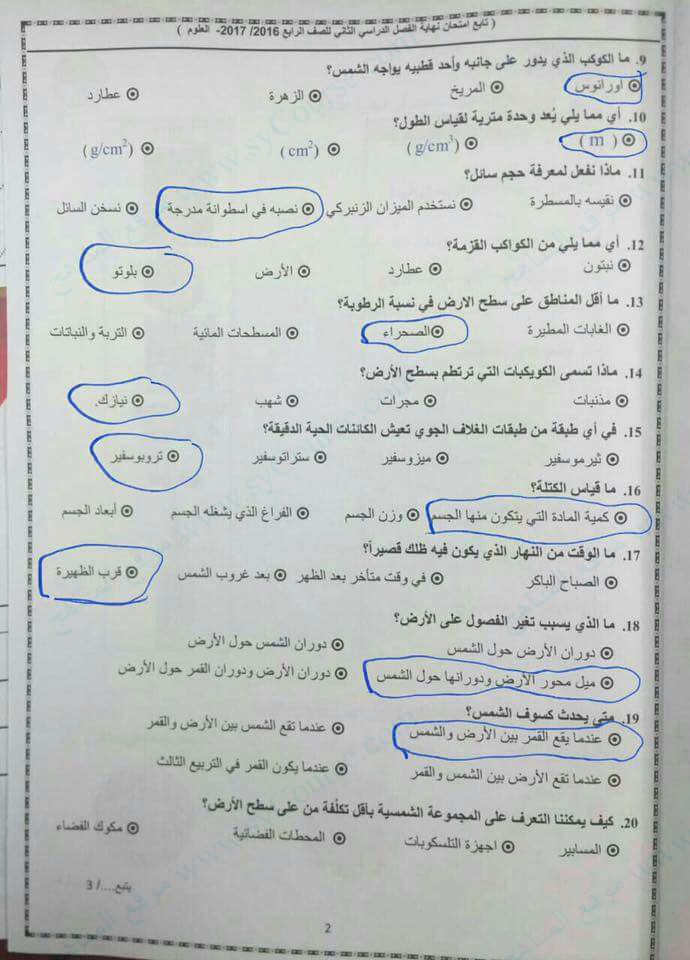 ( تابع امتحان نهاية الفصل الدراسي الثاني للصف الرابع 2016/ 2017- العلوم )
9. ما الكوكب الذي يدور على جانبه وأحد قطبيه يواجه الشمس؟
اورانوس المريخ الزهرة عطارد
10. أي مما يلي يُعد وحدة مترية لقياس الطول؟
( m ) (g/cm³) (cm²) (g/cm²)
11. ماذا نفعل لمعرفة حجم سائل؟
نقيسه بالمسطرة نستخدم الميزان الزنبركي نصبه في اسطوانة مدرجة نسخن السائل
12. أي مما يلي من الكواكب القزمة؟
نبتون عطارد الأرض بلوتو
13. ما أقل المناطق على سطح الارض في نسبة الرطوبة؟
الغابات المطيرة الصحراء المسطحات المائية التربة والنباتات
14. ماذا تسمى الكويكبات التي ترتطم بسطح الأرض؟
مذنبات مجرات شهب نيازك.
15. في أي طبقة من طبقات الغلاف الجوي تعيش الكائنات الحية الدقيقة؟
ثيرموسفير ميزوسفير ستراتوسفير تروبوسفير
16. ما قياس الكتلة؟
كمية المادة التي يتكون منها الجسم وزن الجسم الفراغ الذي يشغله الجسم أبعاد الجسم
17. ما الوقت من النهار الذي يكون فيه ظلك قصيراً؟
الصباح الباكر في وقت متأخر بعد الظهر بعد غروب الشمس قرب الظهيرة
18. ما الذي يسبب تغير الفصول على الأرض؟
دوران الأرض حول الشمس دوران الشمس حول الأرض
ميل محور الأرض ودورانها حول الشمس دوران الأرض ودوران القمر حول الأرض
19. متى يحدث كسوف الشمس؟
عندما يقع القمر بين الأرض والشمس عندما تقع الشمس بين الأرض والقمر
عندما تقع الأرض بين الشمس والقمر عندما يكون القمر في التربيع الثالث
20. كيف يمكننا التعرف على المجموعة الشمسية بأقل تكلفة من على سطح الأرض؟
المسابير اجهزة التلسكوبات المحطات الفضائية مكوك الفضاء
يتبع..../ 3
2
موقع المناهج www.syCourse.com